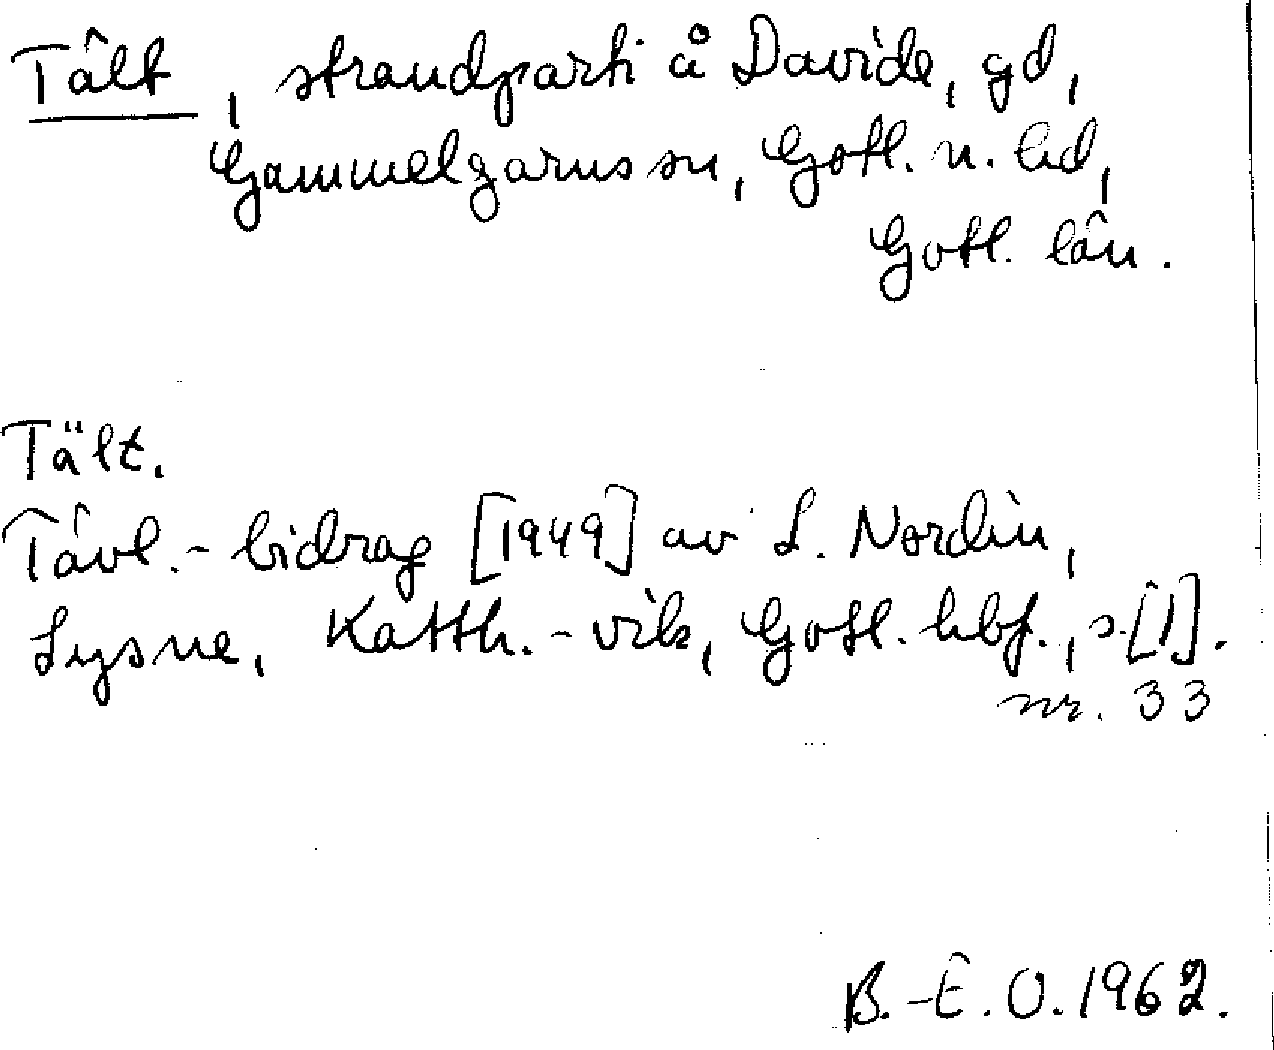 Tält, strandparti å Davide, gd,
Gammelgarns sn, Gotl. n. hd,
Gotl. län.
Tält.
Tävl.-bidrag [1949] av L. Nordin,
Lysne, Katth.-vik, Gotl. hbf., s. [1].
nr. 33
B.-E. O. 1962.